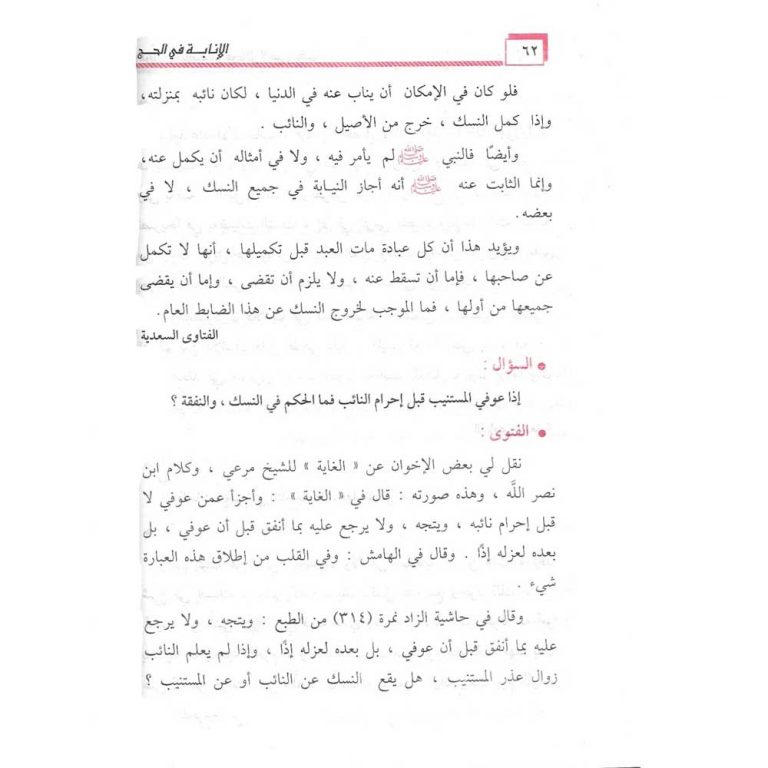 الإنابة في الحج
٦٢
فلو كان في الإمكان أن يناب عنه في الدنيا ، لكان نائبه بمنزلته،
وإذا كمل النسك ، خرج من الأصيل ، والنائب .
وأيضًا فالنبي ﷺ لم يأمر فيه ، ولا في أمثاله أن يكمل عنه،
وإنما الثابت عنه ﷺ أنه أجاز النيابة في جميع النسك ، لا في
بعضه.
ويؤيد هذا أن كل عبادة مات العبد قبل تكميلها ، أنها لا تكمل
عن صاحبها ، فإما أن تسقط عنه ، ولا يلزم أن تقضى ، وإما أن يقضى
جميعها من أولها ، فما الموجب لخروج النسك عن هذا الضابط العام.
الفتاوى السعدية
• السؤال :
إذا عوفي المستنيب قبل إحرام النائب فما الحكم في النسك ، والنفقة ؟
• الفتوى :
نقل لي بعض الإخوان عن « الغاية » للشيخ مرعي ، وكلام ابن
نصر اللَّه ، وهذه صورته : قال في « الغاية » : وأجزأ عمن عوفي لا
قبل إحرام نائبه ، ويتجه ، ولا يرجع عليه بما أنفق قبل أن عوفي ، بل
بعده لعزله إذًا . وقال في الهامش : وفي القلب من إطلاق هذه العبارة
شيء .
وقال في حاشية الزاد نمرة (٣١٤) من الطبع : ويتجه ، ولا يرجع
عليه بما أنفق قبل أن عوفي ، بل بعده لعزله إذًا ، وإذا لم يعلم النائب
زوال عذر المستنيب ، هل يقع النسك عن النائب أو عن المستنيب ؟